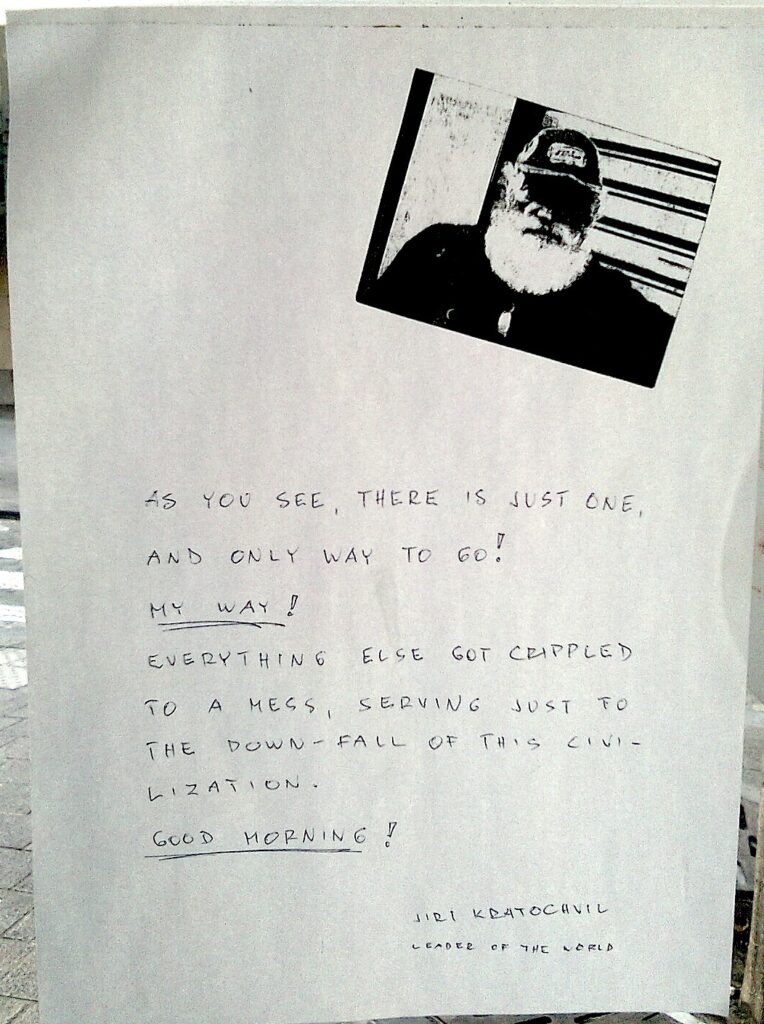 AS YOU SEE, THERE IS JUST ONE,
AND ONLY WAY TO GO!
MY WAY!
EVERYTHING ELSE GOT CRIPPLED
TO A MESS, SERVING JUST TO
THE DOWN-FALL OF THIS CIVI-
LIZATION.
GOOD MORNING!
JIRI KRATOCHVIL
LEADER OF THE WORLD